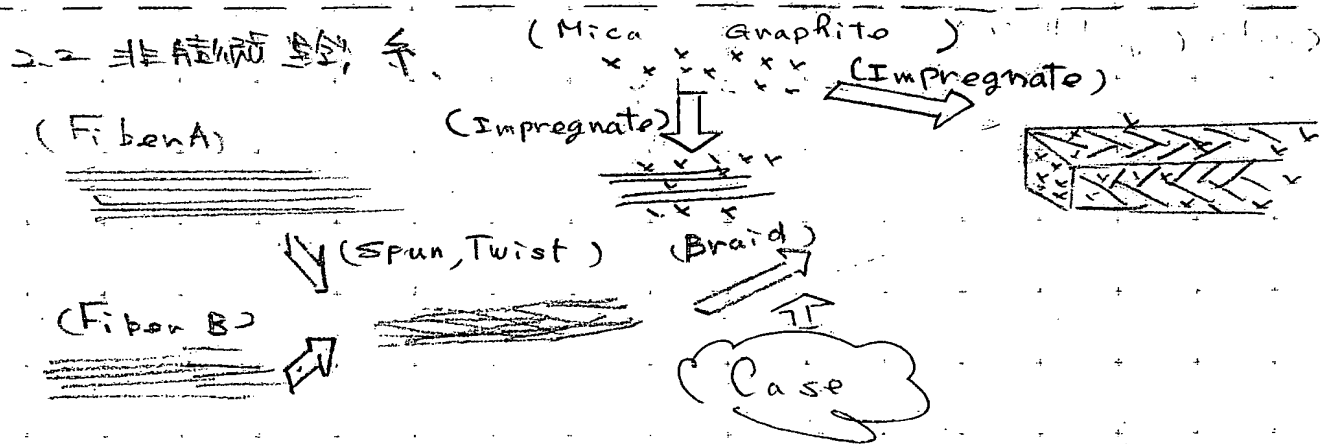 2.2 非膨
(Mica Graphite)
(Impregnate)
(Impregnate)
(Fiber A)
(Spun, Twist)
(Braid)
(Fiber B)
Case